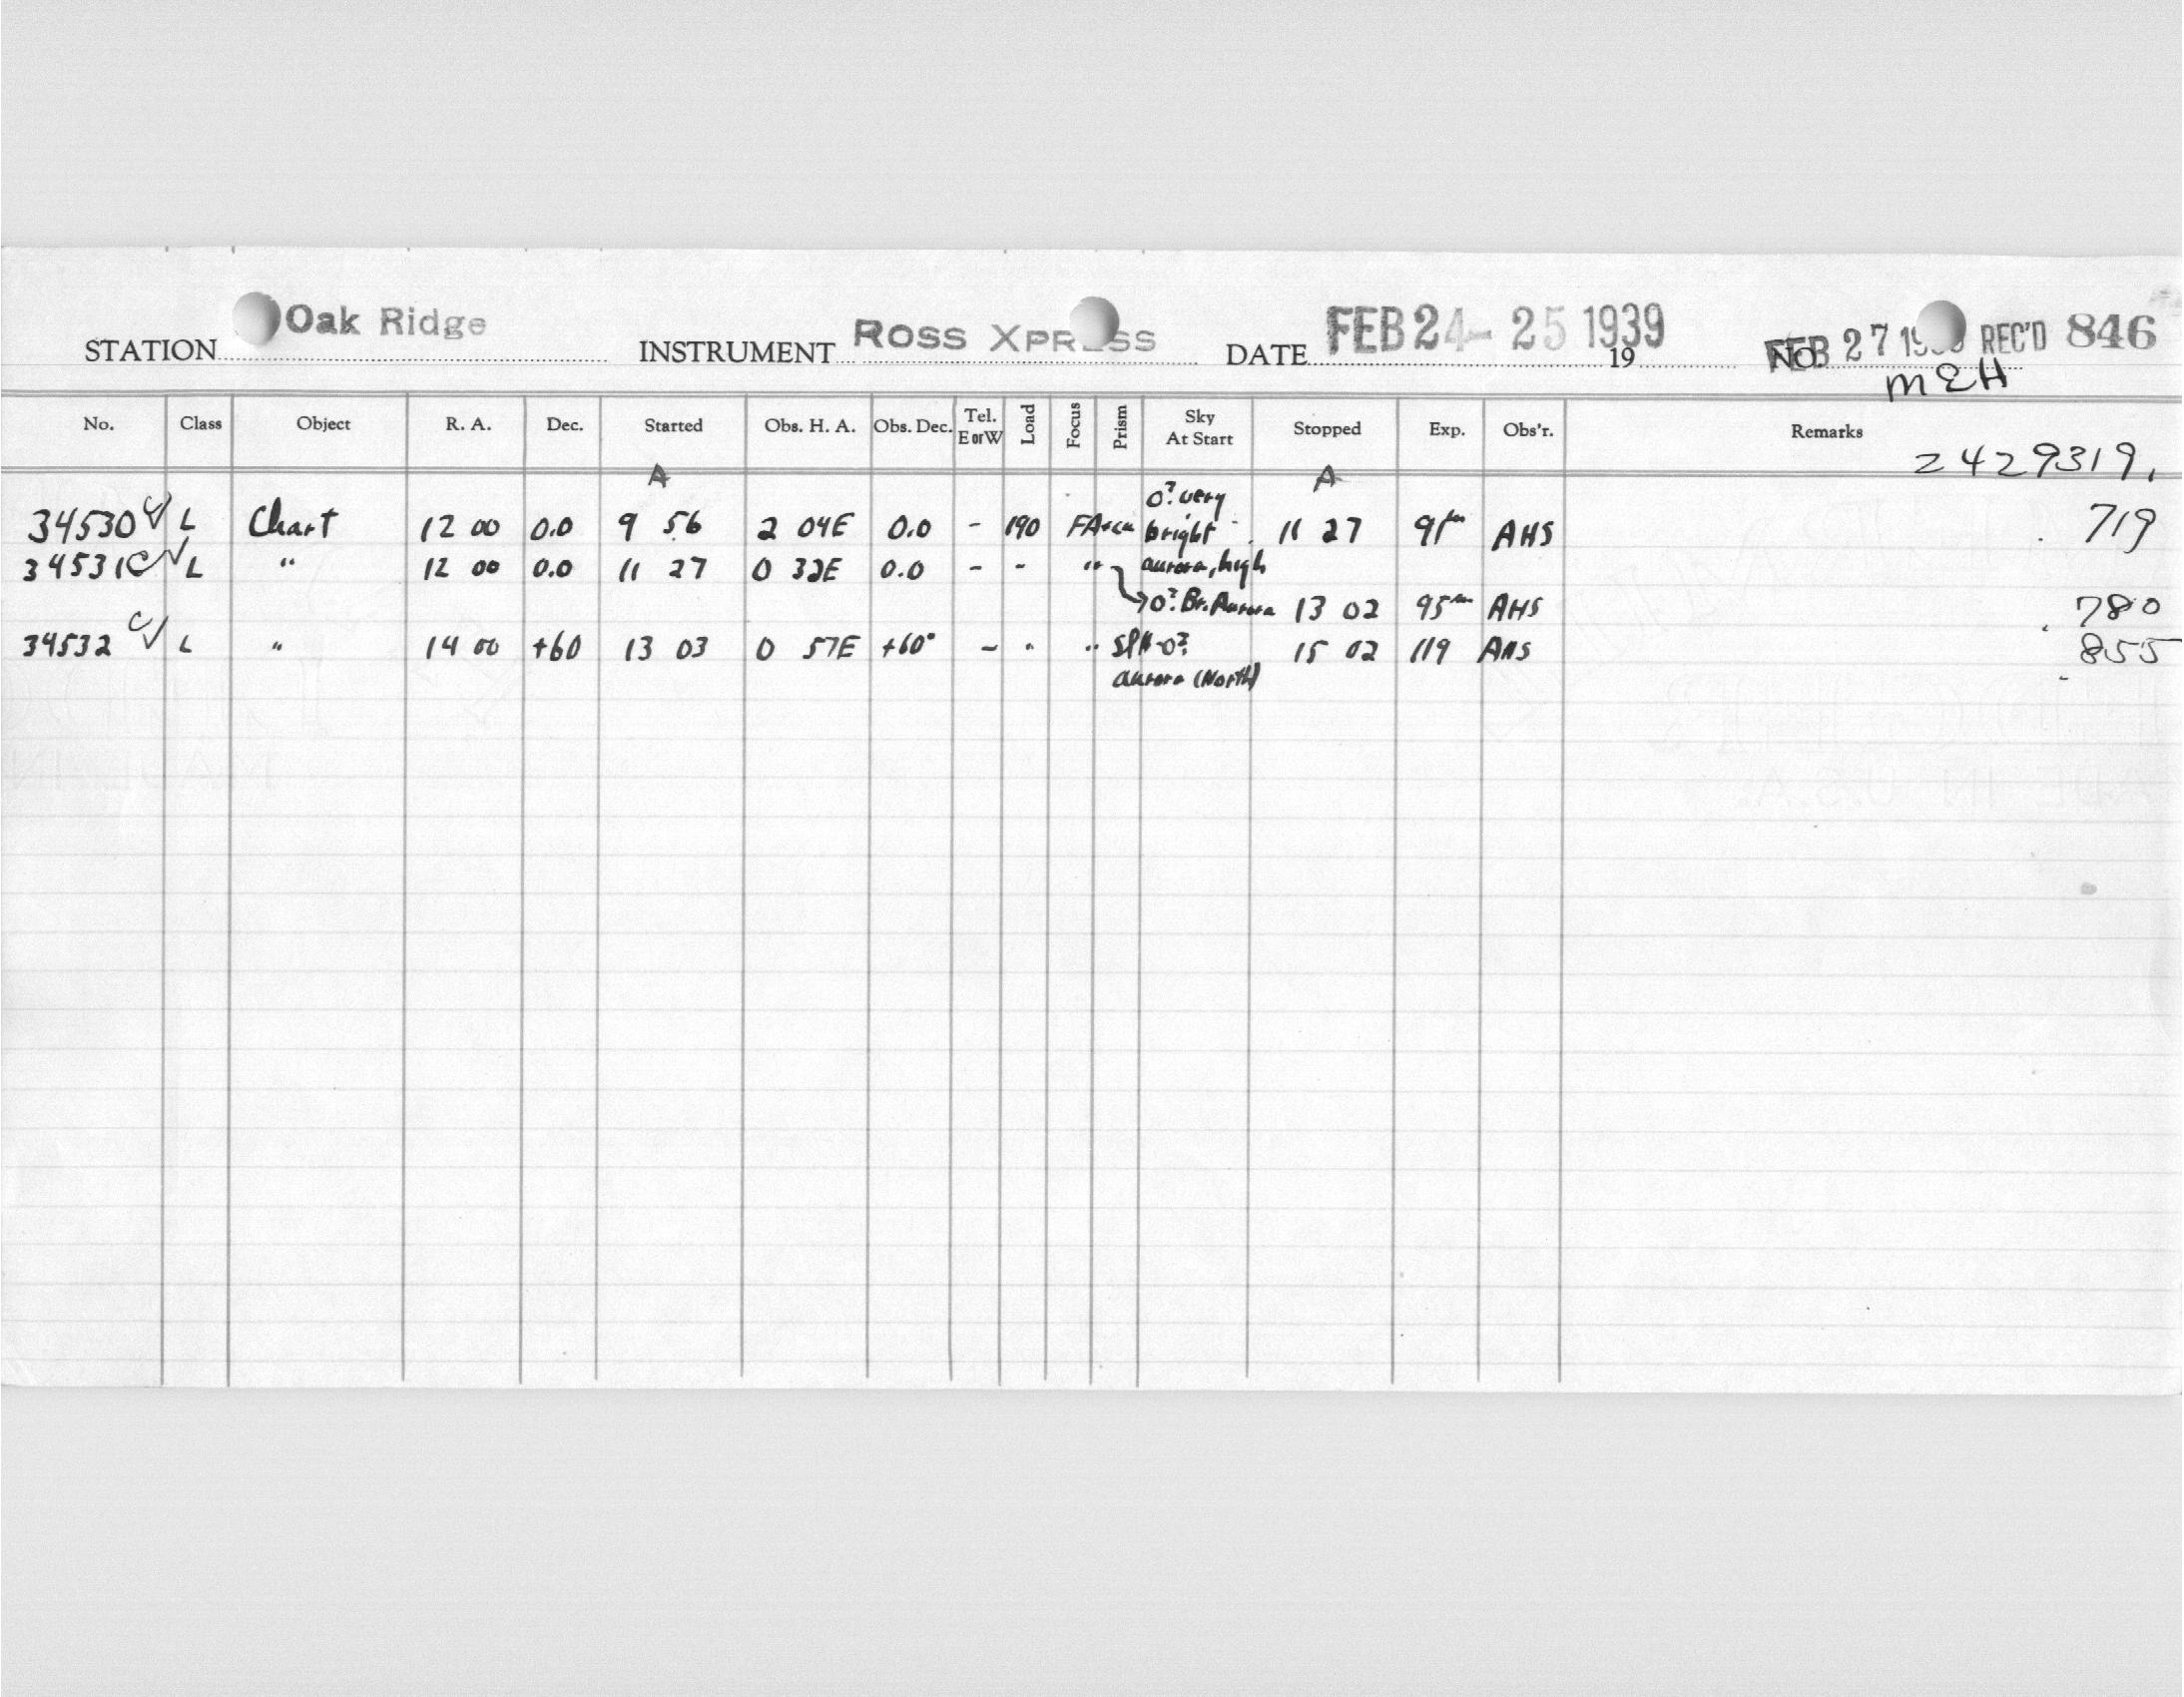 STATION Oak Ridge INSTRUMENT ROSS XPRESS DATE FEB 24-25 1939 19 NO. FEB 27 19 REC'D 846
MEH
No. Class Object R. A. Dec. Started Obs. H. A. Obs. Dec. Tel. E or W Load Focus Prism Sky At Start Stopped Exp. Obs'r. Remarks
2429319.
A A
34530 C√ L Chart 12 00 0.0 9 56 2 04E 0.0 - 190 0? very bright 11 27 91m AHS .719
34531 C√ L " 12 00 0.0 11 27 0 32E 0.0 - - " aurora, high
→0? Br. Aurora 13 02 95m AHS .780
34532 C√ L " 14 00 +60 13 03 0 57E +60° - " " 0? 15 02 119 AHS .855
aurora (North)